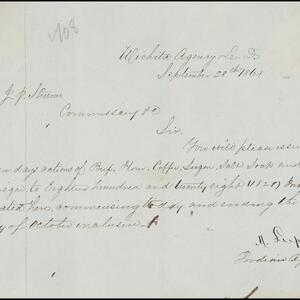 No 8
Wichita Agency Le. D.
September 28th 1861
J. J. Sturm
Commissary &c
Sir.
You will please issue
en days rations of Beef. Flour. Coffee. Sugar. Salt. Soap and
egar to Eighteen hundred and twenty eight (182
ated here, commencing the day and ending the
y of October inclusive.
M. Leep
Indian Ag